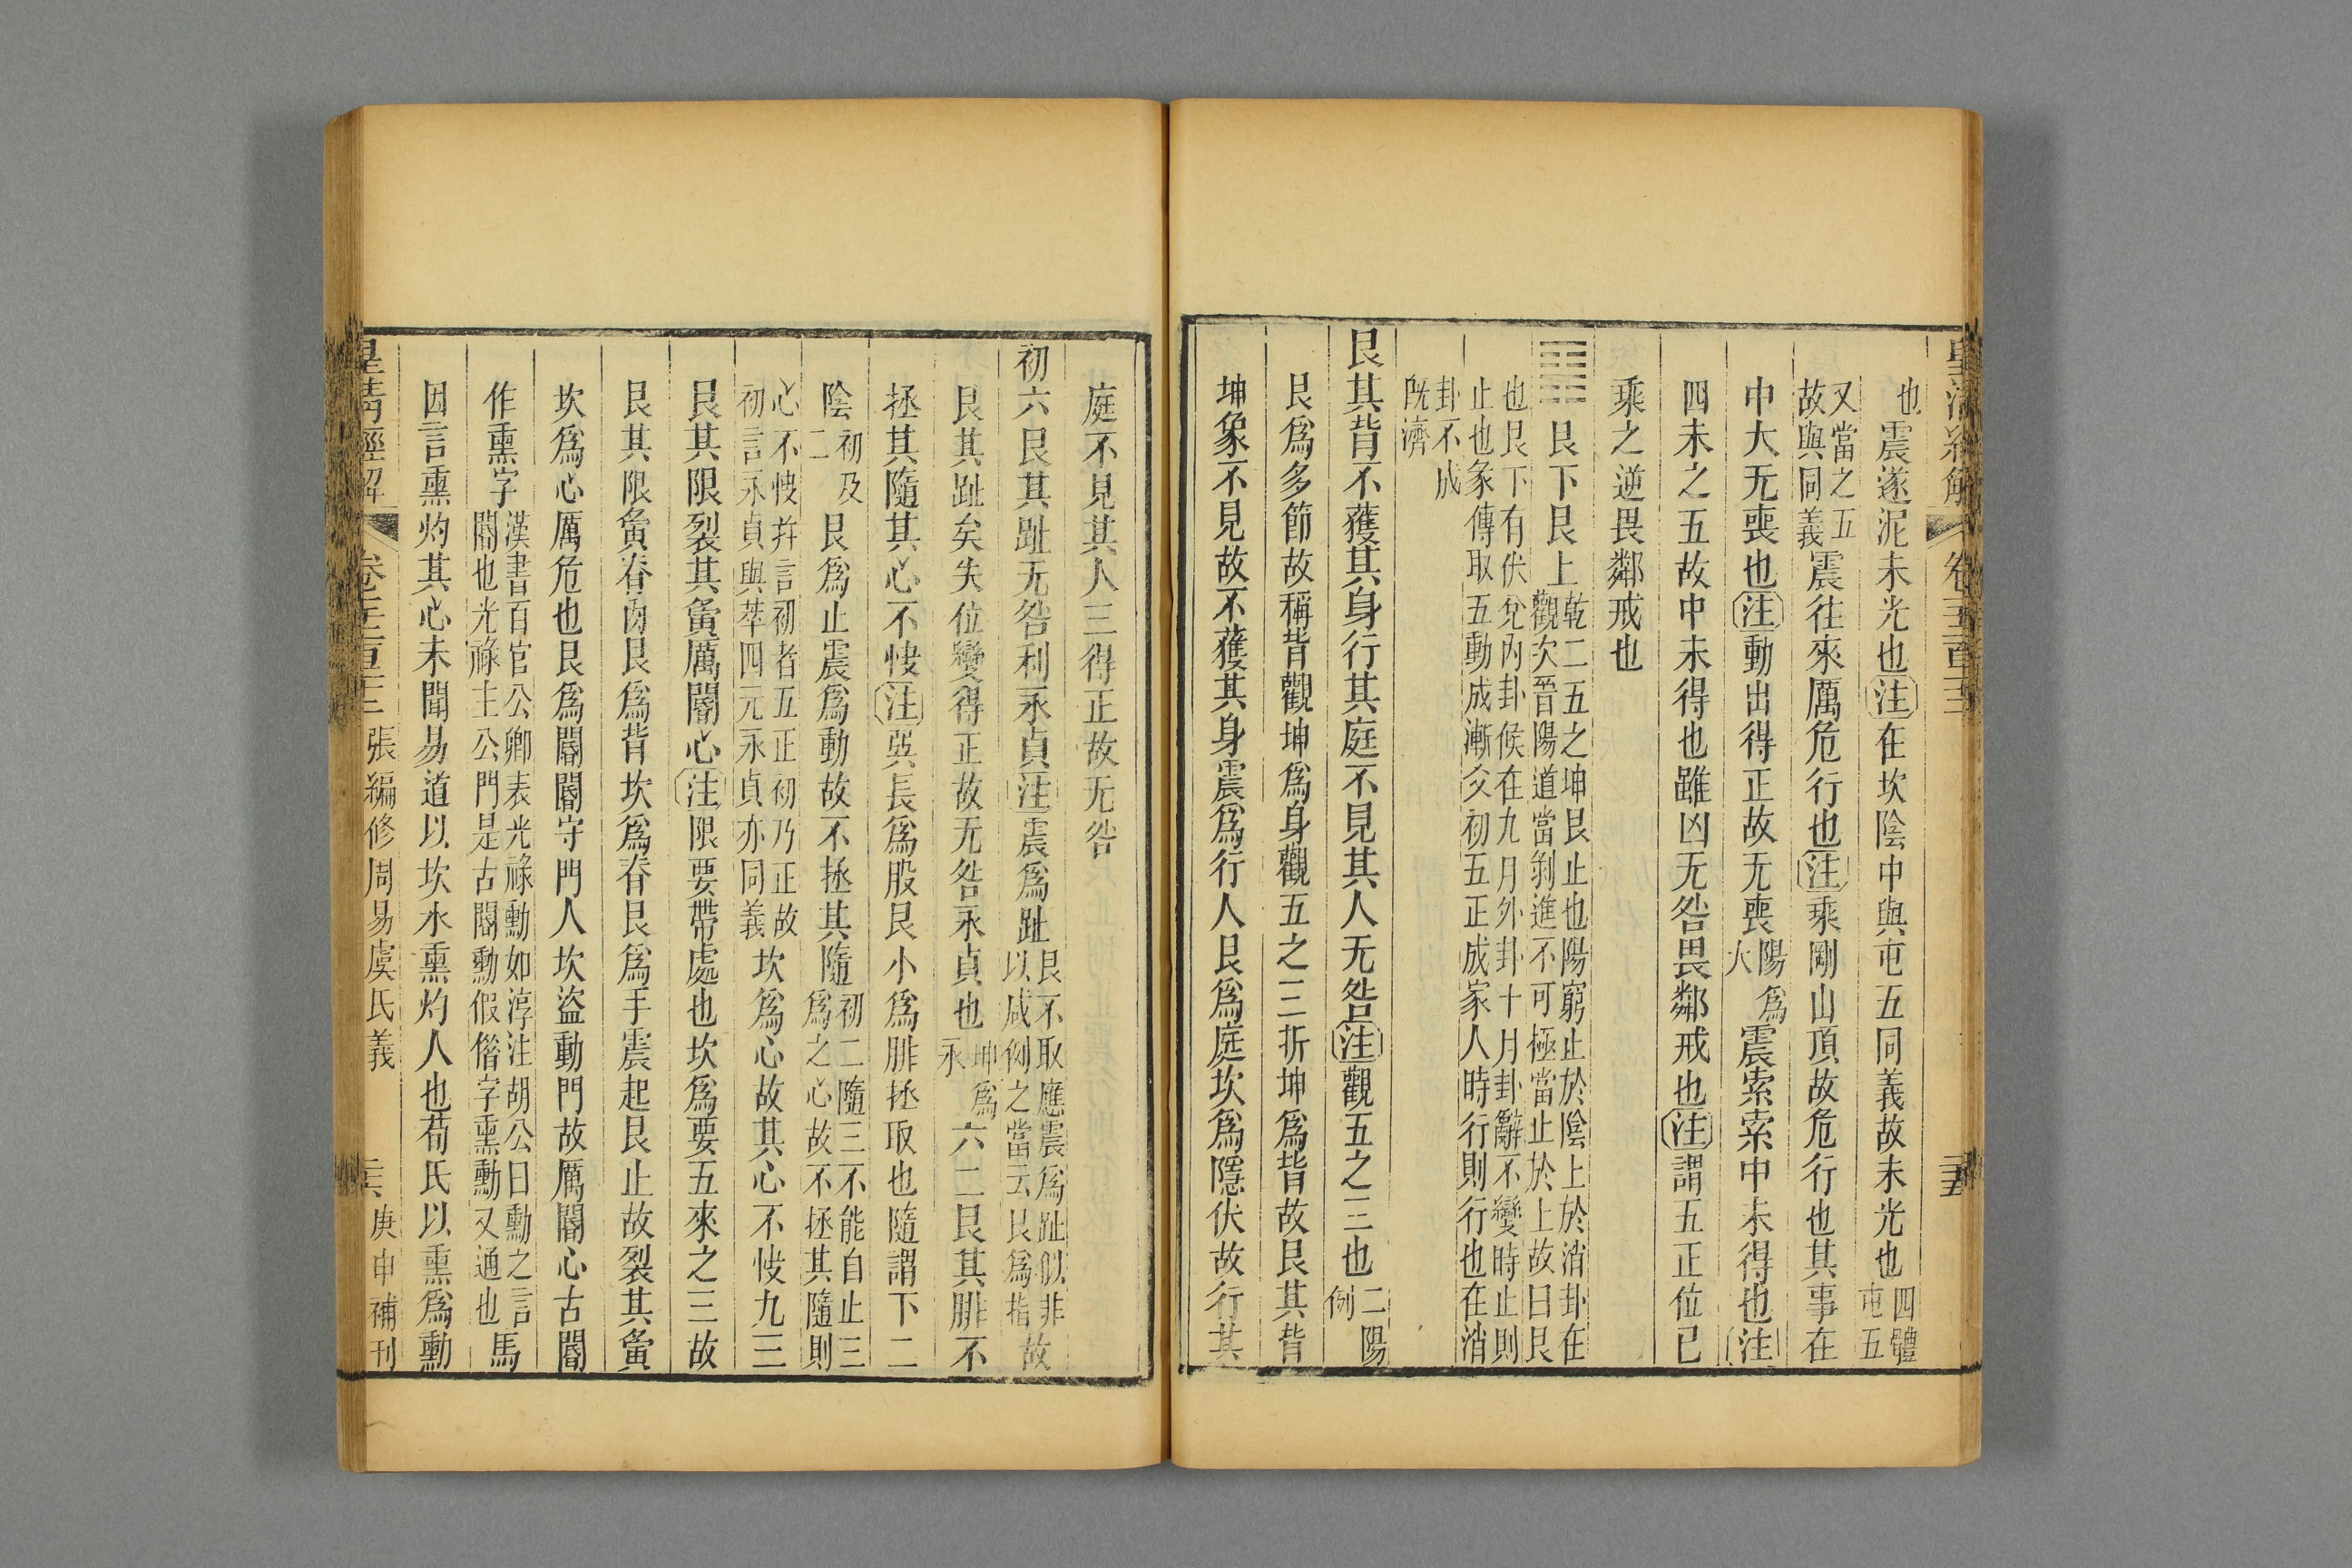 也震遂泥未光也注在坎陰中與屯五同義故未光也四體屯五
又當之五故與同義震往來厲危行也注乘剛山頂故危行也其事在
中大无喪也注動出得正故无喪陽為大震索索中未得也注
四未之五故中未得也雖凶无咎畏鄰戒也注謂五正位已
乘之逆畏鄰戒也
艮下艮上乾二五之坤艮止也陽窮止於陰上於消卦在觀次晉陽道當剝進不可極當止於上故曰艮
也艮下有伏兌內卦候在九月外卦十月卦辭不變時止則止也彖傳取五動成漸爻初五正成家人時行則行也在消
卦不成既濟
艮其背不獲其身行其庭不見其人无咎注觀五之三也二陽例
艮為多節故稱背觀坤為身觀五之三折坤為背故艮其背
坤象不見故不獲其身震為行人艮為庭坎為隱伏故行其
皇清經解 卷 二五
庭不見其人三得正故无咎
初六艮其趾无咎利永貞注震為趾艮不取應震為趾似非以咸例之當云艮為指故
艮其趾矣失位變得正故无咎永貞也坤為永六二艮其腓不
拯其隨其心不快注巽長為股艮小為腓拯取也隨謂下二
陰初及二艮為止震為動故不拯其隨初二隨三不能自止三為之心故不拯其隨則
心不快并言初者五正初乃正故初言永貞與萃四元永貞亦同義坎為心故其心不快九三
艮其限裂其夤厲閽心注限要帶處也坎為要五來之三故
艮其限夤脊肉艮為背坎為脊艮為手震起艮止故裂其夤
坎為心厲危也艮為閽閽守門人坎盜動門故厲閽心古閽
作熏字漢書百官公卿表光祿勳如淳注胡公曰勳之言閽也光祿主公門是古閽勳假借字熏勳又通也馬
因言熏灼其心未聞易道以坎水熏灼人也荀氏以熏為勳
皇清經解 卷 張編修周易虞氏義 庚申補刊